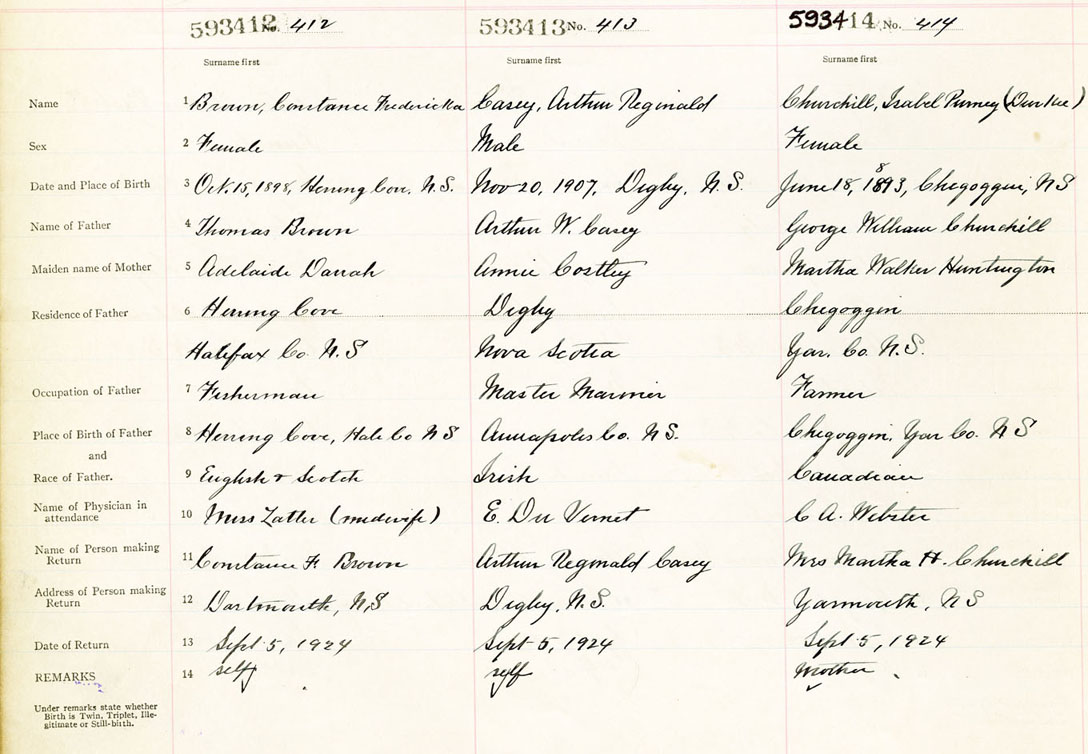 593412 No. 412 593413 No. 413 593414 No. 414
Surname first Surname first Surname first
Name 1 Brown, Constance Fredericka Casey, Arthur Reginald Churchill, Isabel Purney (Durkee)
Sex 2 Female Male Female
Date and Place of Birth 3 Oct. 15, 1898, Herring Cov. N.S. Nov 20, 1907, Digby, N.S. June 18, 1893, Chegoggin, NS
Name of Father 4 Thomas Brown Arthur W. Casey George William Churchill
Maiden name of Mother 5 Adelaide Darrah Annie Costley Martha Walker Huntington
Residence of Father 6 Herring Cove Digby Chegoggin
Halifax Co. N.S Nova Scotia Yar. Co. N.S.
Occupation of Father 7 Fisherman Master Mariner Farmer
Place of Birth of Father 8 Herring Cove, Co N S Annapolis Co. N.S. Chegoggin, Yar Co. N S
and
Race of Father. 9 English & Scotch Irish Canadian
Name of Physician in attendance 10 (midwife) E. Du Vernet C A. Webster
Name of Person making Return 11 Constance F Brown Arthur Reginald Casey Mrs Martha H. Churchill
Address of Person making Return 12 Dartmouth, N,S Digby, N.S. Yarmouth, N S
Date of Return 13 Sept 5, 1924 Sept 5, 1924 Sept 5, 1924
REMARKS 14 self self mother
Under remarks state whether
Birth is Twin, Triplet, Ille-
gitimate or Still-birth.